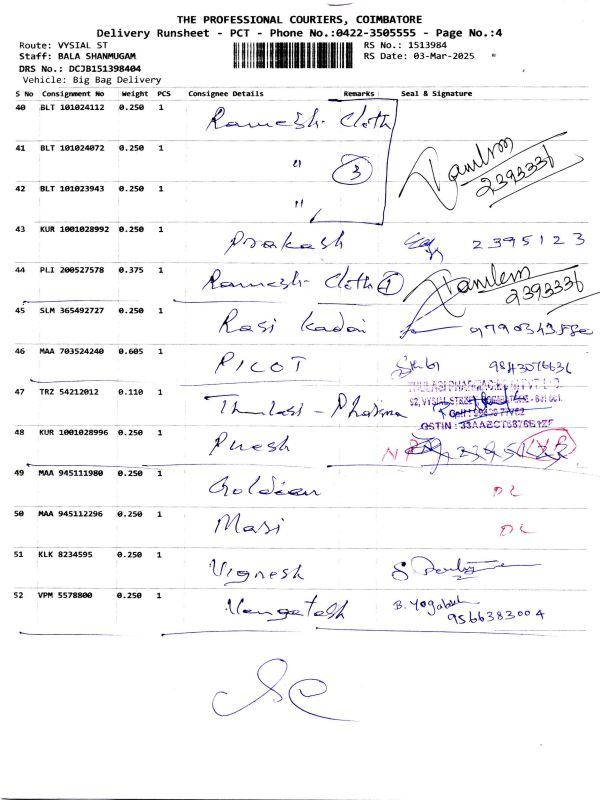 THE PROFESSIONAL COURIERS, COIMBATORE
Delivery Runsheet - PCT - Phone No.:0422-3505555 - Page No.:4
Route: VYSIAL ST RS No.: 1513984
Staff: BALA SHANMUGAM RS Date: 03-Mar-2025
DRS No.: DCJB151398404
Vehicle: Big Bag Delivery
S No Consignment No Weight PCS Consignee Details Remarks Seal & Signature
40 BLT 101024112 0.250 1 Ramesh Cloth
41 BLT 101024072 0.250 1 " 3 2393331
42 BLT 101023943 0.250 1 "
43 KUR 1001028992 0.250 1 Prakash 2395123
44 PLI 200527578 0.375 1 Ramesh Cloth 1 2393331
45 SLM 365492727 0.250 1 Rasi Kadai
46 MAA 703524240 0.605 1 PICOT 9843076631
47 TRZ 54212012 0.110 1 Thulasi - Pharma
48 KUR 1001028996 0.250 1
49 MAA 945111980 0.250 1 DL
50 MAA 945112296 0.250 1 Masi DL
51 KLK 8234595 0.250 1 Vignesh
52 VPM 5578800 0.250 1 B. Yogabalan
9566383004